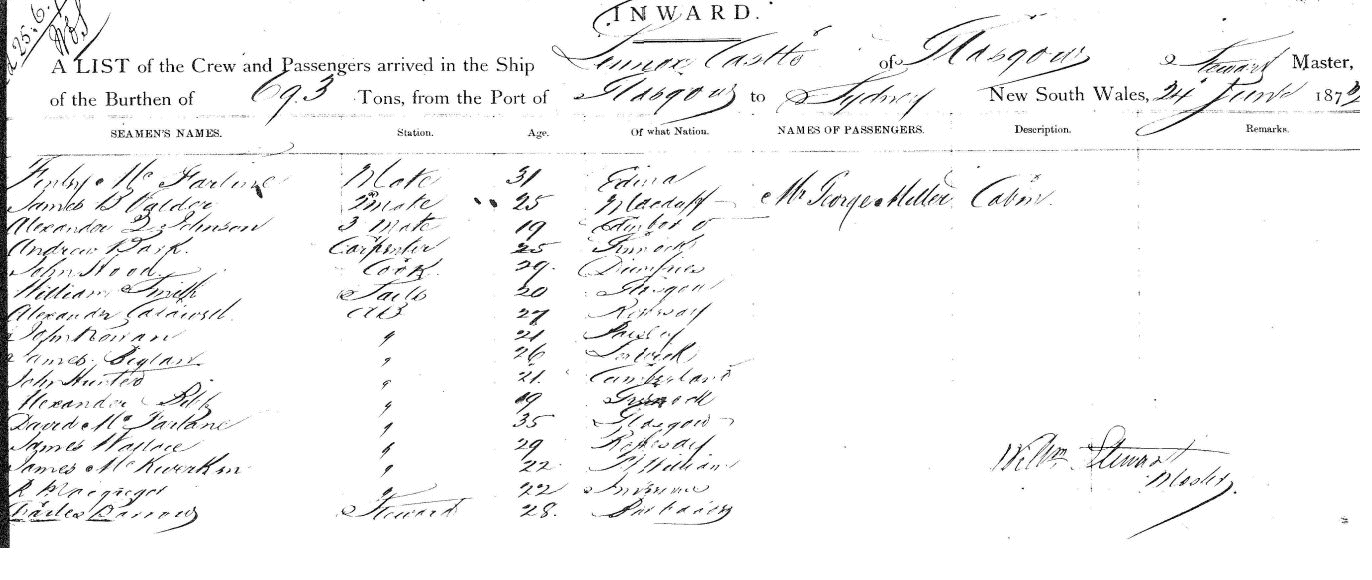 25.6.
INWARD.
A LIST of the Crew and Passengers arrived in the Ship Lennox Castle of Glasgow Stewart Master,
of the Burthen of 693 Tons, from the Port of Glasgow to Sydney New South Wales, 24 June 187
SEAMEN'S NAMES. Station. Age. Of what Nation. NAMES OF PASSENGERS. Description. Remarks.
Mc Farline Mate 31 Edina
James B Calder 2 Mate 25 Macduff Mr George Miller Cabin
Alexander Johnson 3 Mate 19
Andrew Park. Carpenter 25
John Hood Cook 29. Dumfries
William Smith Sails 20 Glasgow
Alexander Caldwell AB 27
John Rowan " 21 Paisley
James " 26 Lerwick
John Hunter " 21. Cumberland
Alexander " 19 Greenock
David Mc Farlane " 35 Glasgow
James Wallace " 29 Rothesay
James Mc " 22 Wm Stewart
R Macgregor " 22 Master
Charles Barrow Steward 28.